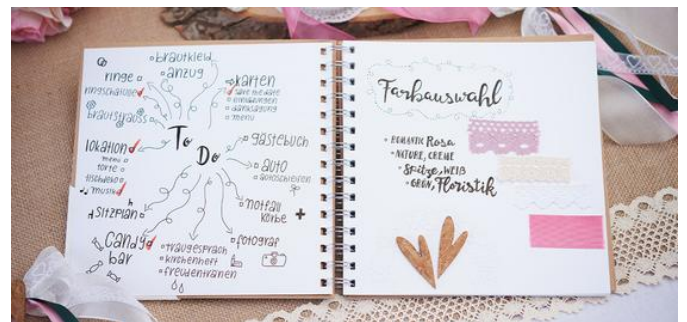 brautkleid
anzug
ringe
ringschatulle
brautstrauss
karten
save the date
einladungen
danksagung
menü
To
Do
lokation
menü
torte
tischdeko
musik
sitzplan
candy
bar
gästebuch
auto
autoschleifen
notfall
körbe
fotograf
traugespräch
kirchenheft
freudentränen
Farbauswahl
ROMANTIC Rosa
NATURE, CREME
Spitze, WEIß
GRÜN, Floristik